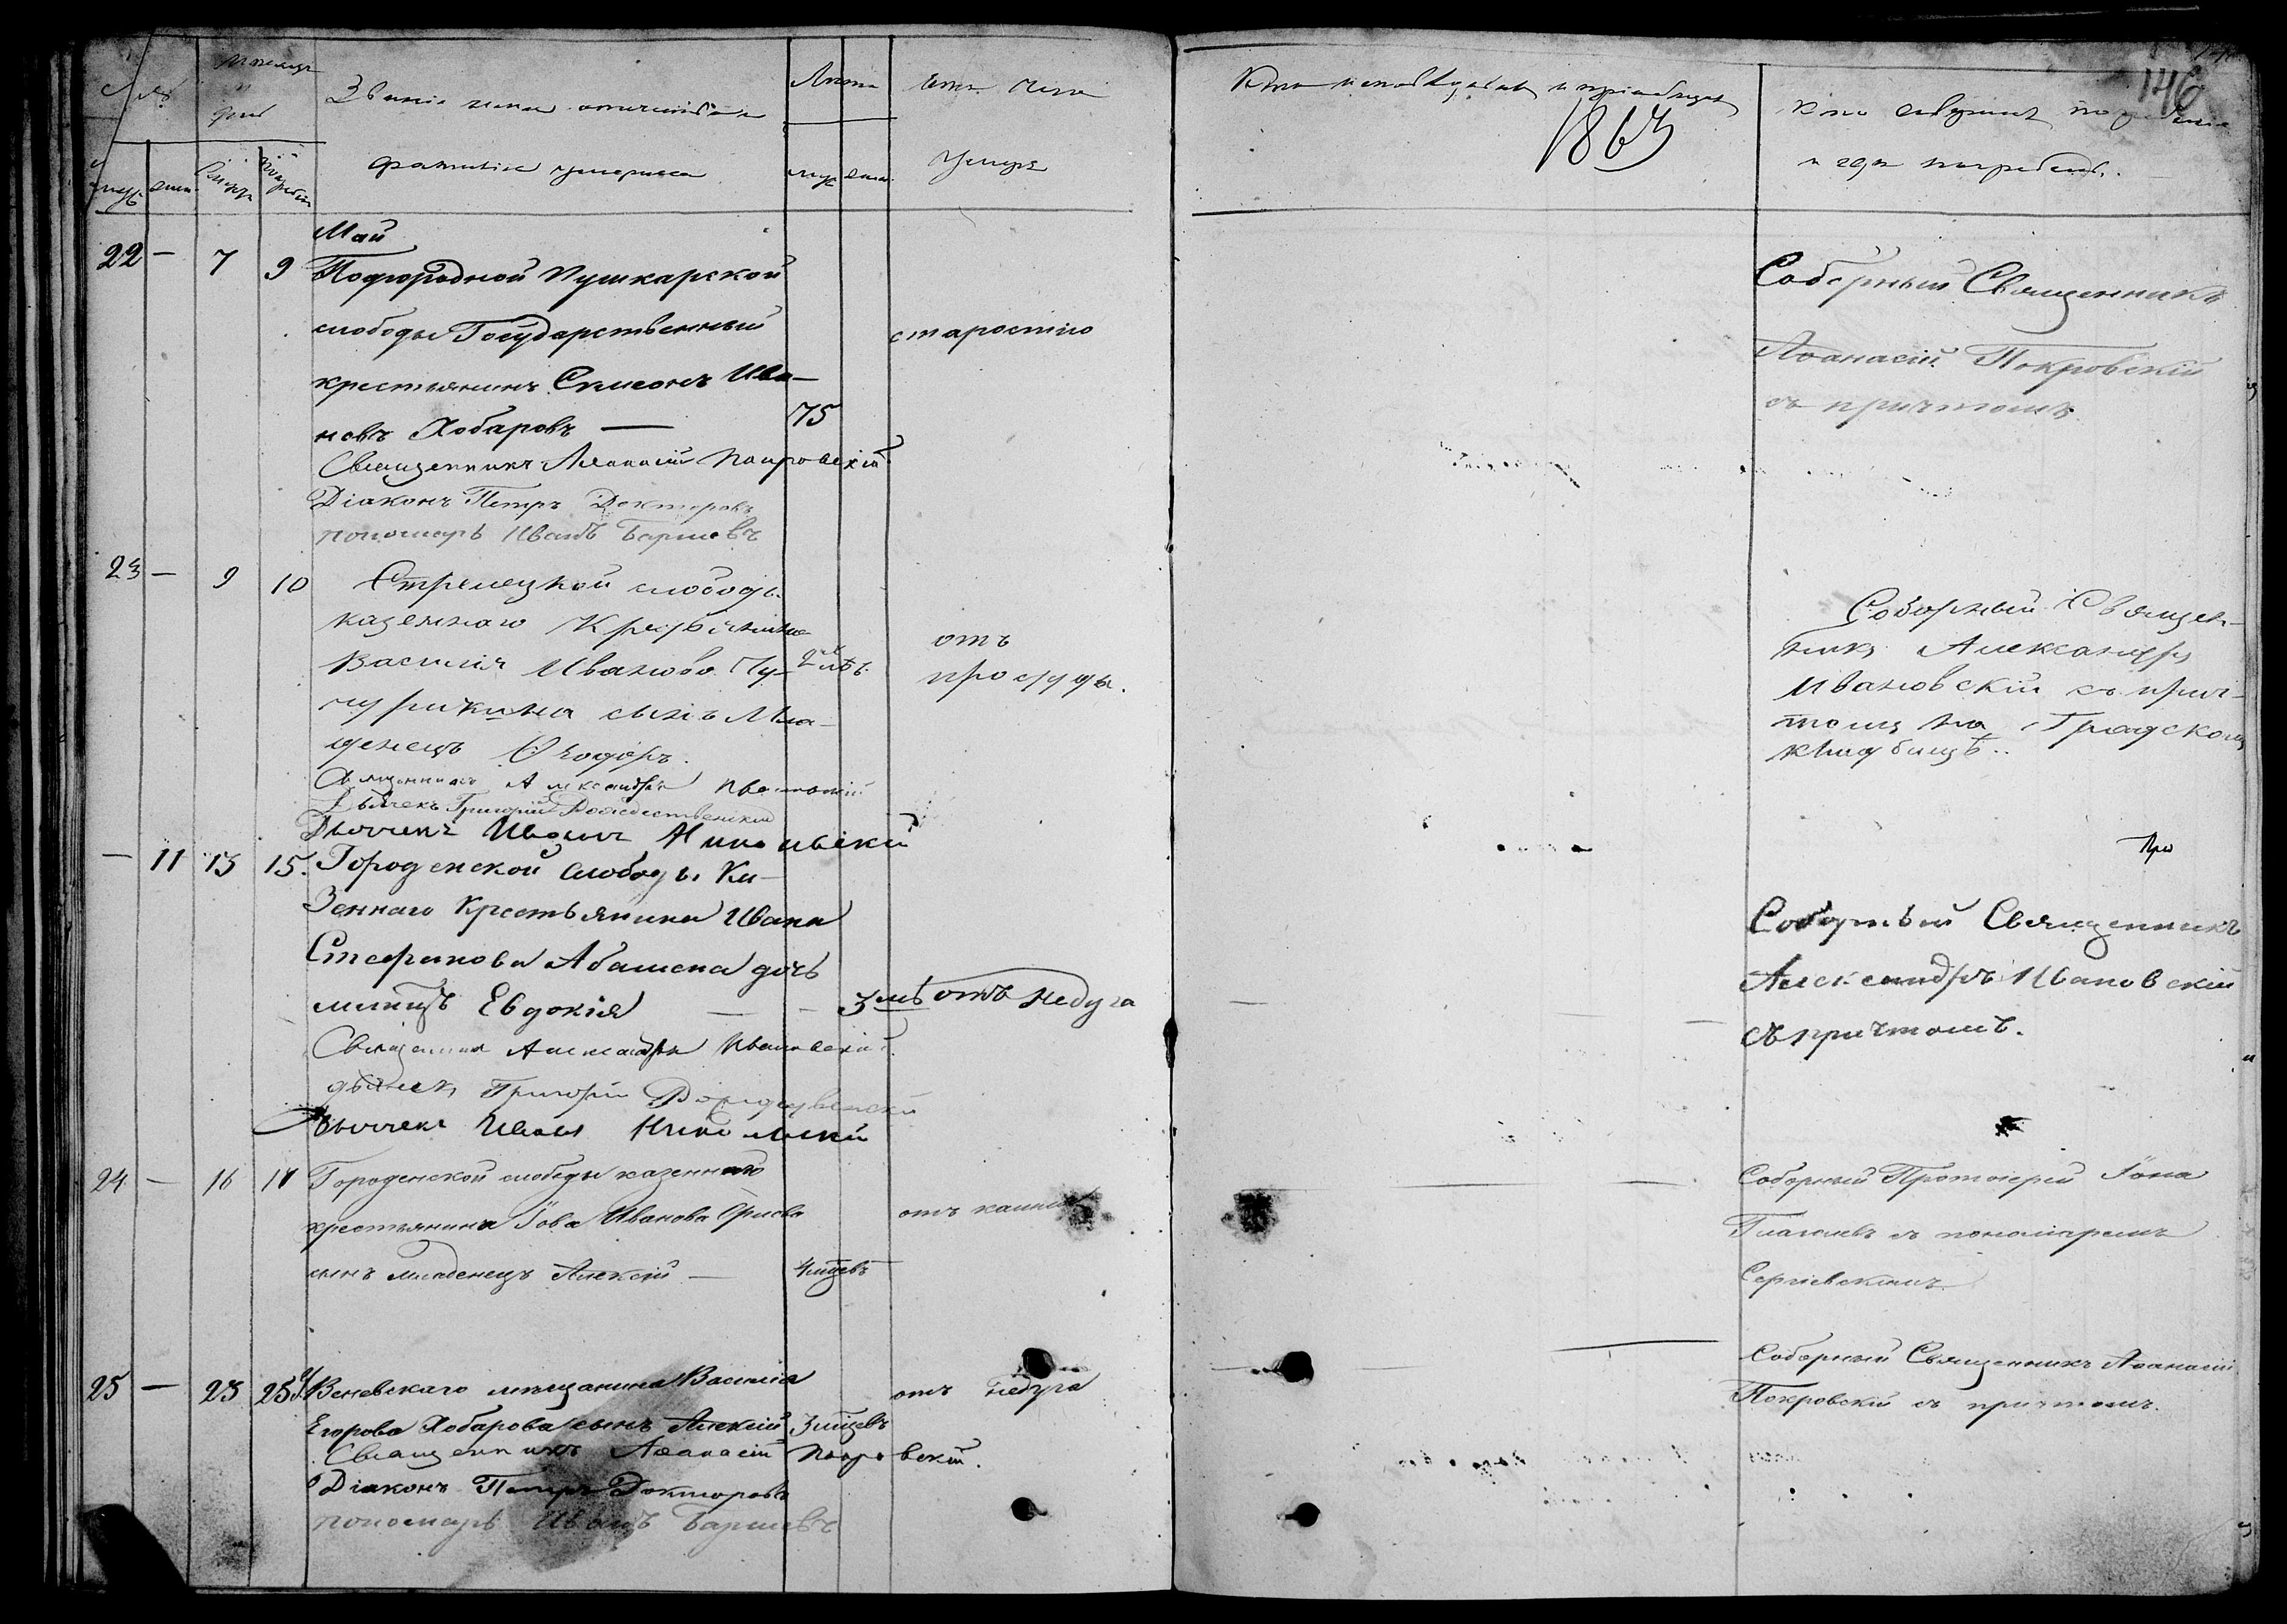 Мѣсяцъ
и
день
Званіе имя отчество и
фамилія умершаго
Лѣта
Отъ чего
умеръ
муж. жен.
Кто исповѣдывалъ и пріобщалъ
1863
Кто совершалъ погребеніе
и гдѣ погребенъ.
146
Май
22 — 7 9 Подгородной Пушкарской
слободы Государственный
крестьянинъ Симеонъ Ива-
новъ Хобаровъ — 75
старостію
Соборный Священникъ
Аѳанасій Покровскій
съ причтомъ
Священникъ Аѳанасій Покровскій
Діаконъ Петръ Докторовъ
пономарь Иванъ
23 — 9 10 Стрелецкой слободы
казеннаго Крестьянина
Василія Иванова
сынъ Мла-
денецъ Ѳеодоръ.
отъ
простуды.
Соборный Священ-
никъ Александръ
Ивановскій съ прич-
томъ на Градскомъ
кладбищѣ.
Священникъ Александръ Ивановскій
Дьячекъ Григорій Рождественскій
Дьячекъ Иванъ Никольскій
— 11 13 15. Городенской слободы Ка-
зеннаго Крестьянина Ивана
Стефанова дочь
Евдокія — 3 отъ недуга
Соборный Священникъ
Александръ Ивановскій
съ причтомъ.
Священникъ Александръ Ивановскій
дьячекъ Григорій Рождественскій
Дьячекъ Иванъ Никольскій
24 — 16 Городенской слободы казеннаго
крестьянина Іова Иванова
сынъ младенецъ Алексій —
отъ
Соборный Протоіерей Іона
Глаголевъ съ пономаремъ
Сергіевскимъ
25 — 23 25 Веневскаго мѣщанина Василія
Егорова Хобарова сынъ Алексій
отъ недуга
Соборный Священникъ Аѳанасій
Покровскій съ причтомъ.
Священникъ Аѳанасій Покровскій.
Діаконъ Петръ Докторовъ
пономарь Иванъ